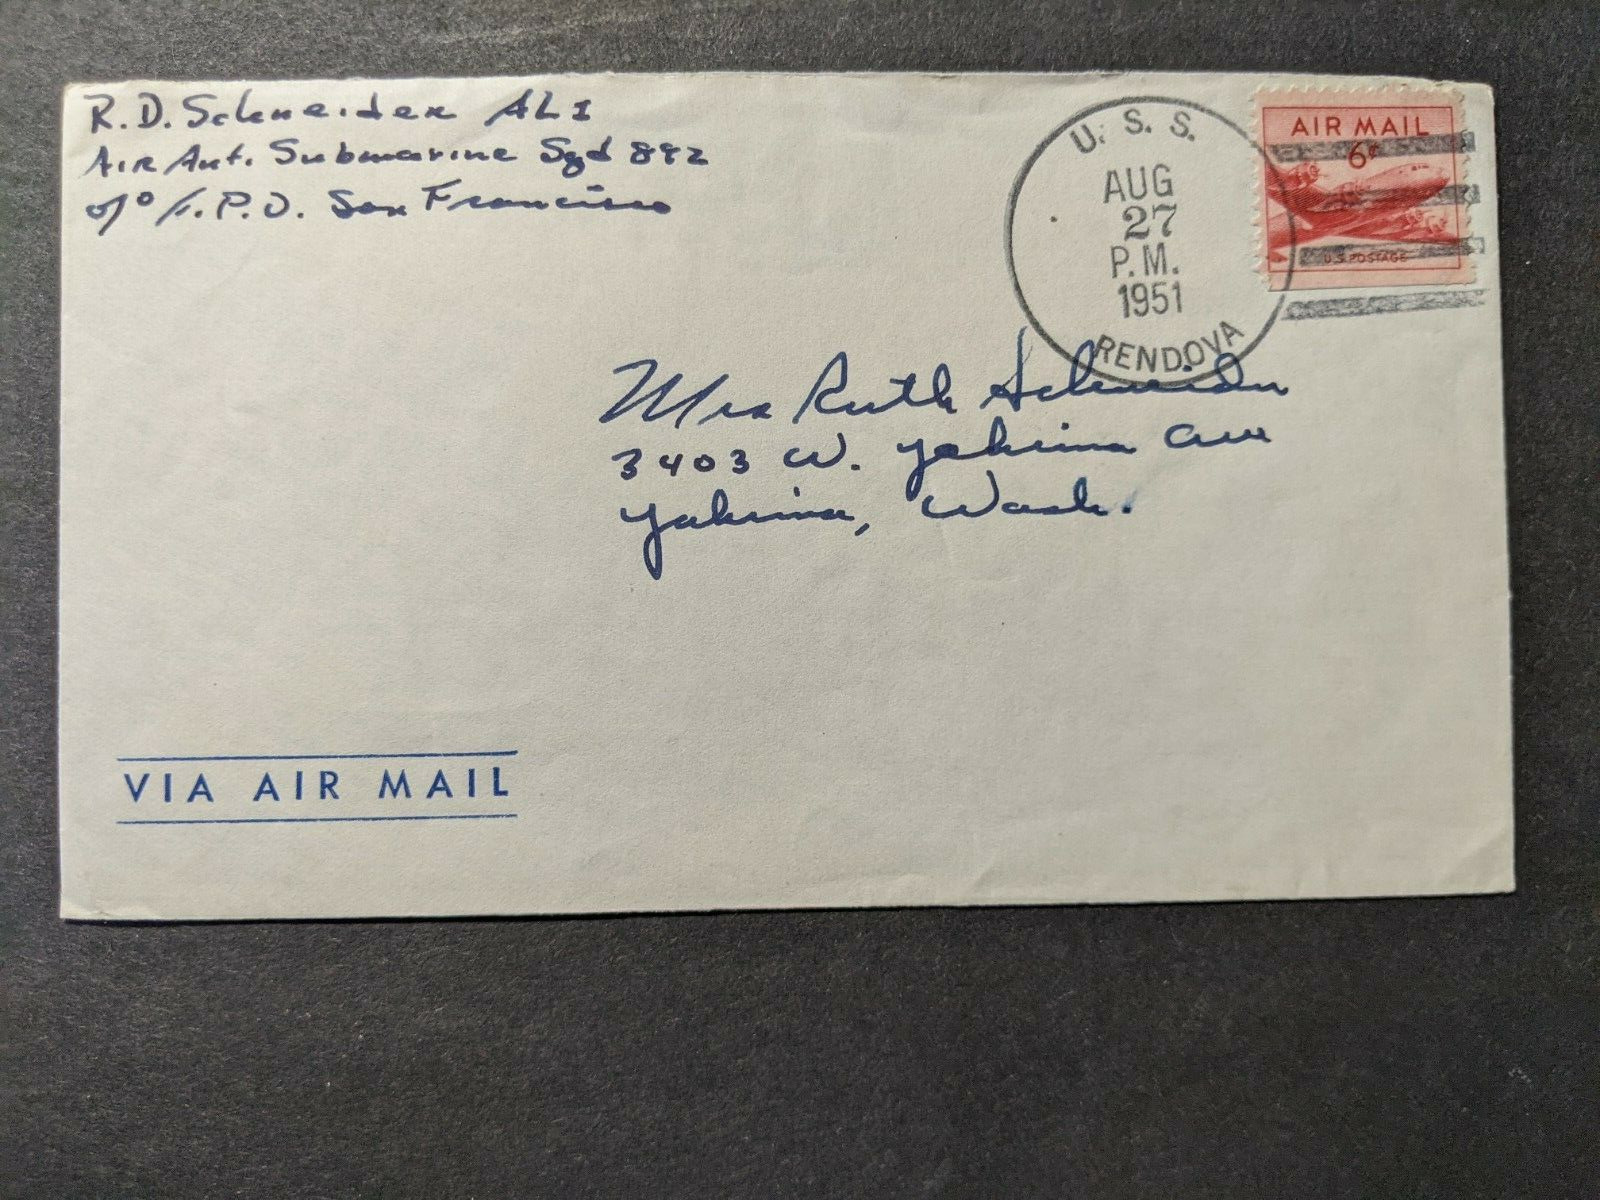 R. D. Schneider AL1
Air Ant. Submarine Sqd 892
c/o F.P.O. San Francisco
U. S. S.
AUG
27
P.M.
1951
RENDOVA
AIR MAIL
6¢
U.S. POSTAGE
Mrs Ruth Schneider
3403 W. Yakima Ave
Yakima, Wash.
VIA AIR MAIL